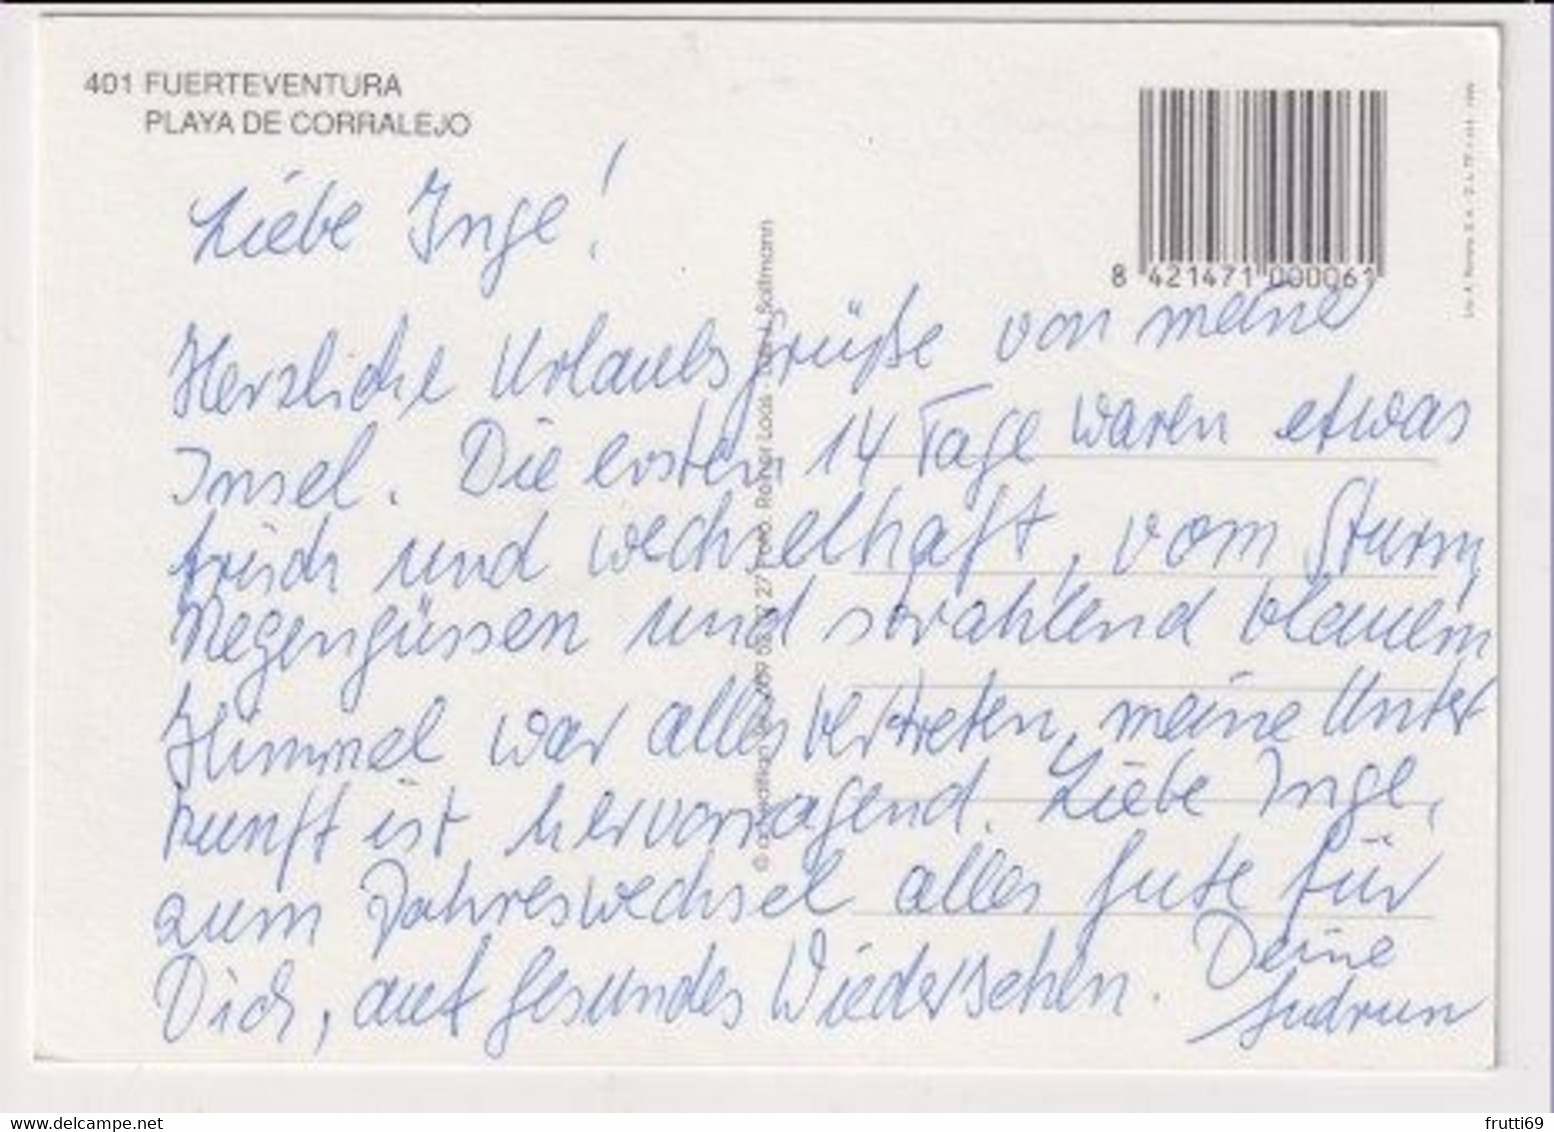 401 FUERTEVENTURA
PLAYA DE CORRALEJO
8 421471 000061
Liebe Inge!
Herzliche Urlaubsgrüße von meine
Insel. Die ersten 14 Tage waren etwas
frisch und wechselhaft, vom Sturm,
Regengüssen und strahlend blauem
Himmel war alles vertreten, meine Unter
kunft ist hervorragend. Liebe Inge,
zum Jahreswechsel alles Gute für
Dich, auf gesundes Wiedersehen. Deine
Gudrun
Foto: Rainer Loos
Soltmann
frutti69